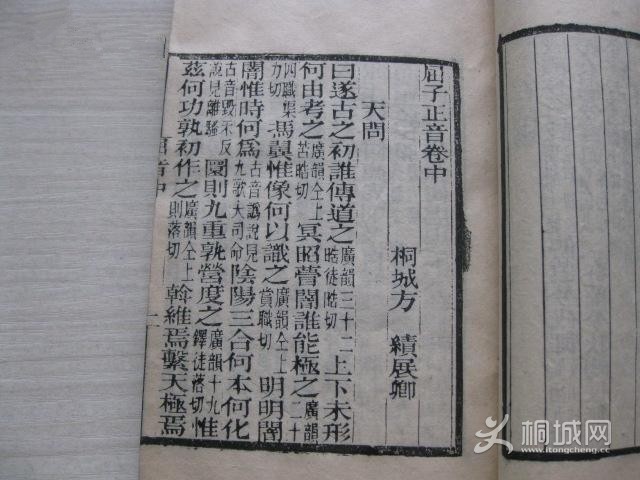 屈子正音卷中
桐城方 績展卿
天問
曰遂古之初誰傳道之廣韻三十二晧徒晧切上下未形
何由考之廣韻仝上苦晧切冥昭瞢闇誰能極之廣韻二十
四職集力切馮翼惟像何以識之廣韻仝上賞職切明明闇
闇惟時何爲古音譌說見九歌大司命陰陽三合何本何化
古音毀禾反說見離騷圜則九重孰營度之廣韻十九鐸徒落切惟
茲何功孰初作之廣韻仝上則落切斡維焉繫天極焉
二
桐城网
www.itongcheng.cc